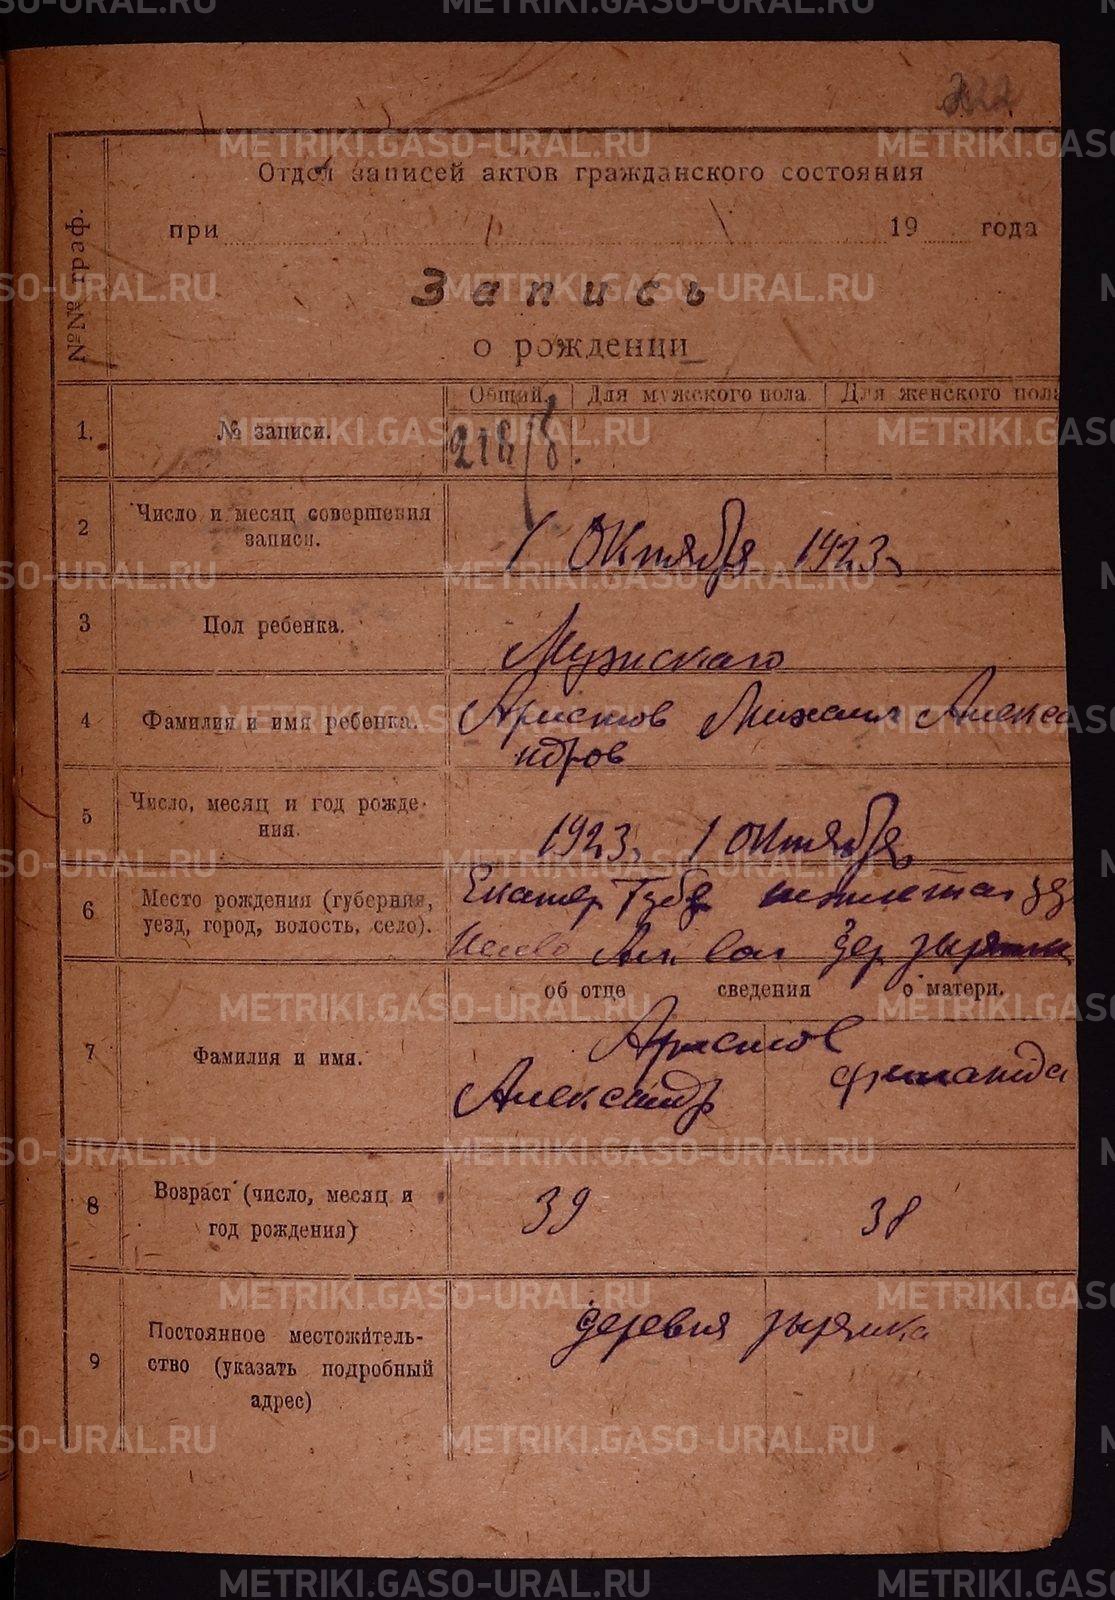 322
Отдел записей актов гражданского состояния
при 19 года
Запись
о рождении
№№ граф.
Общий. Для мужского пола Для женского пола
1. № записи. 218/8.
2 Число и месяц совершения записи. 1 Октября 1923 г.
3 Пол ребенка. Мужскаго
4 Фамилия и имя ребенка. Аристов Михаил Алекса
ндров
5 Число, месяц и год рожде-
ния. 1923 г. 1 Октября
6 Место рождения (губерния, Екатер Губер
уезд, город, волость, село). вол дер зырянк
об отце сведения о матери.
7 Фамилия и имя. Аристов
Александр
8 Возраст (число, месяц и 39 38
год рождения)
9 Постоянное местожитель- деревня зырянка
ство (указать подробный
адрес)
METRIKI.GASO-URAL.RU